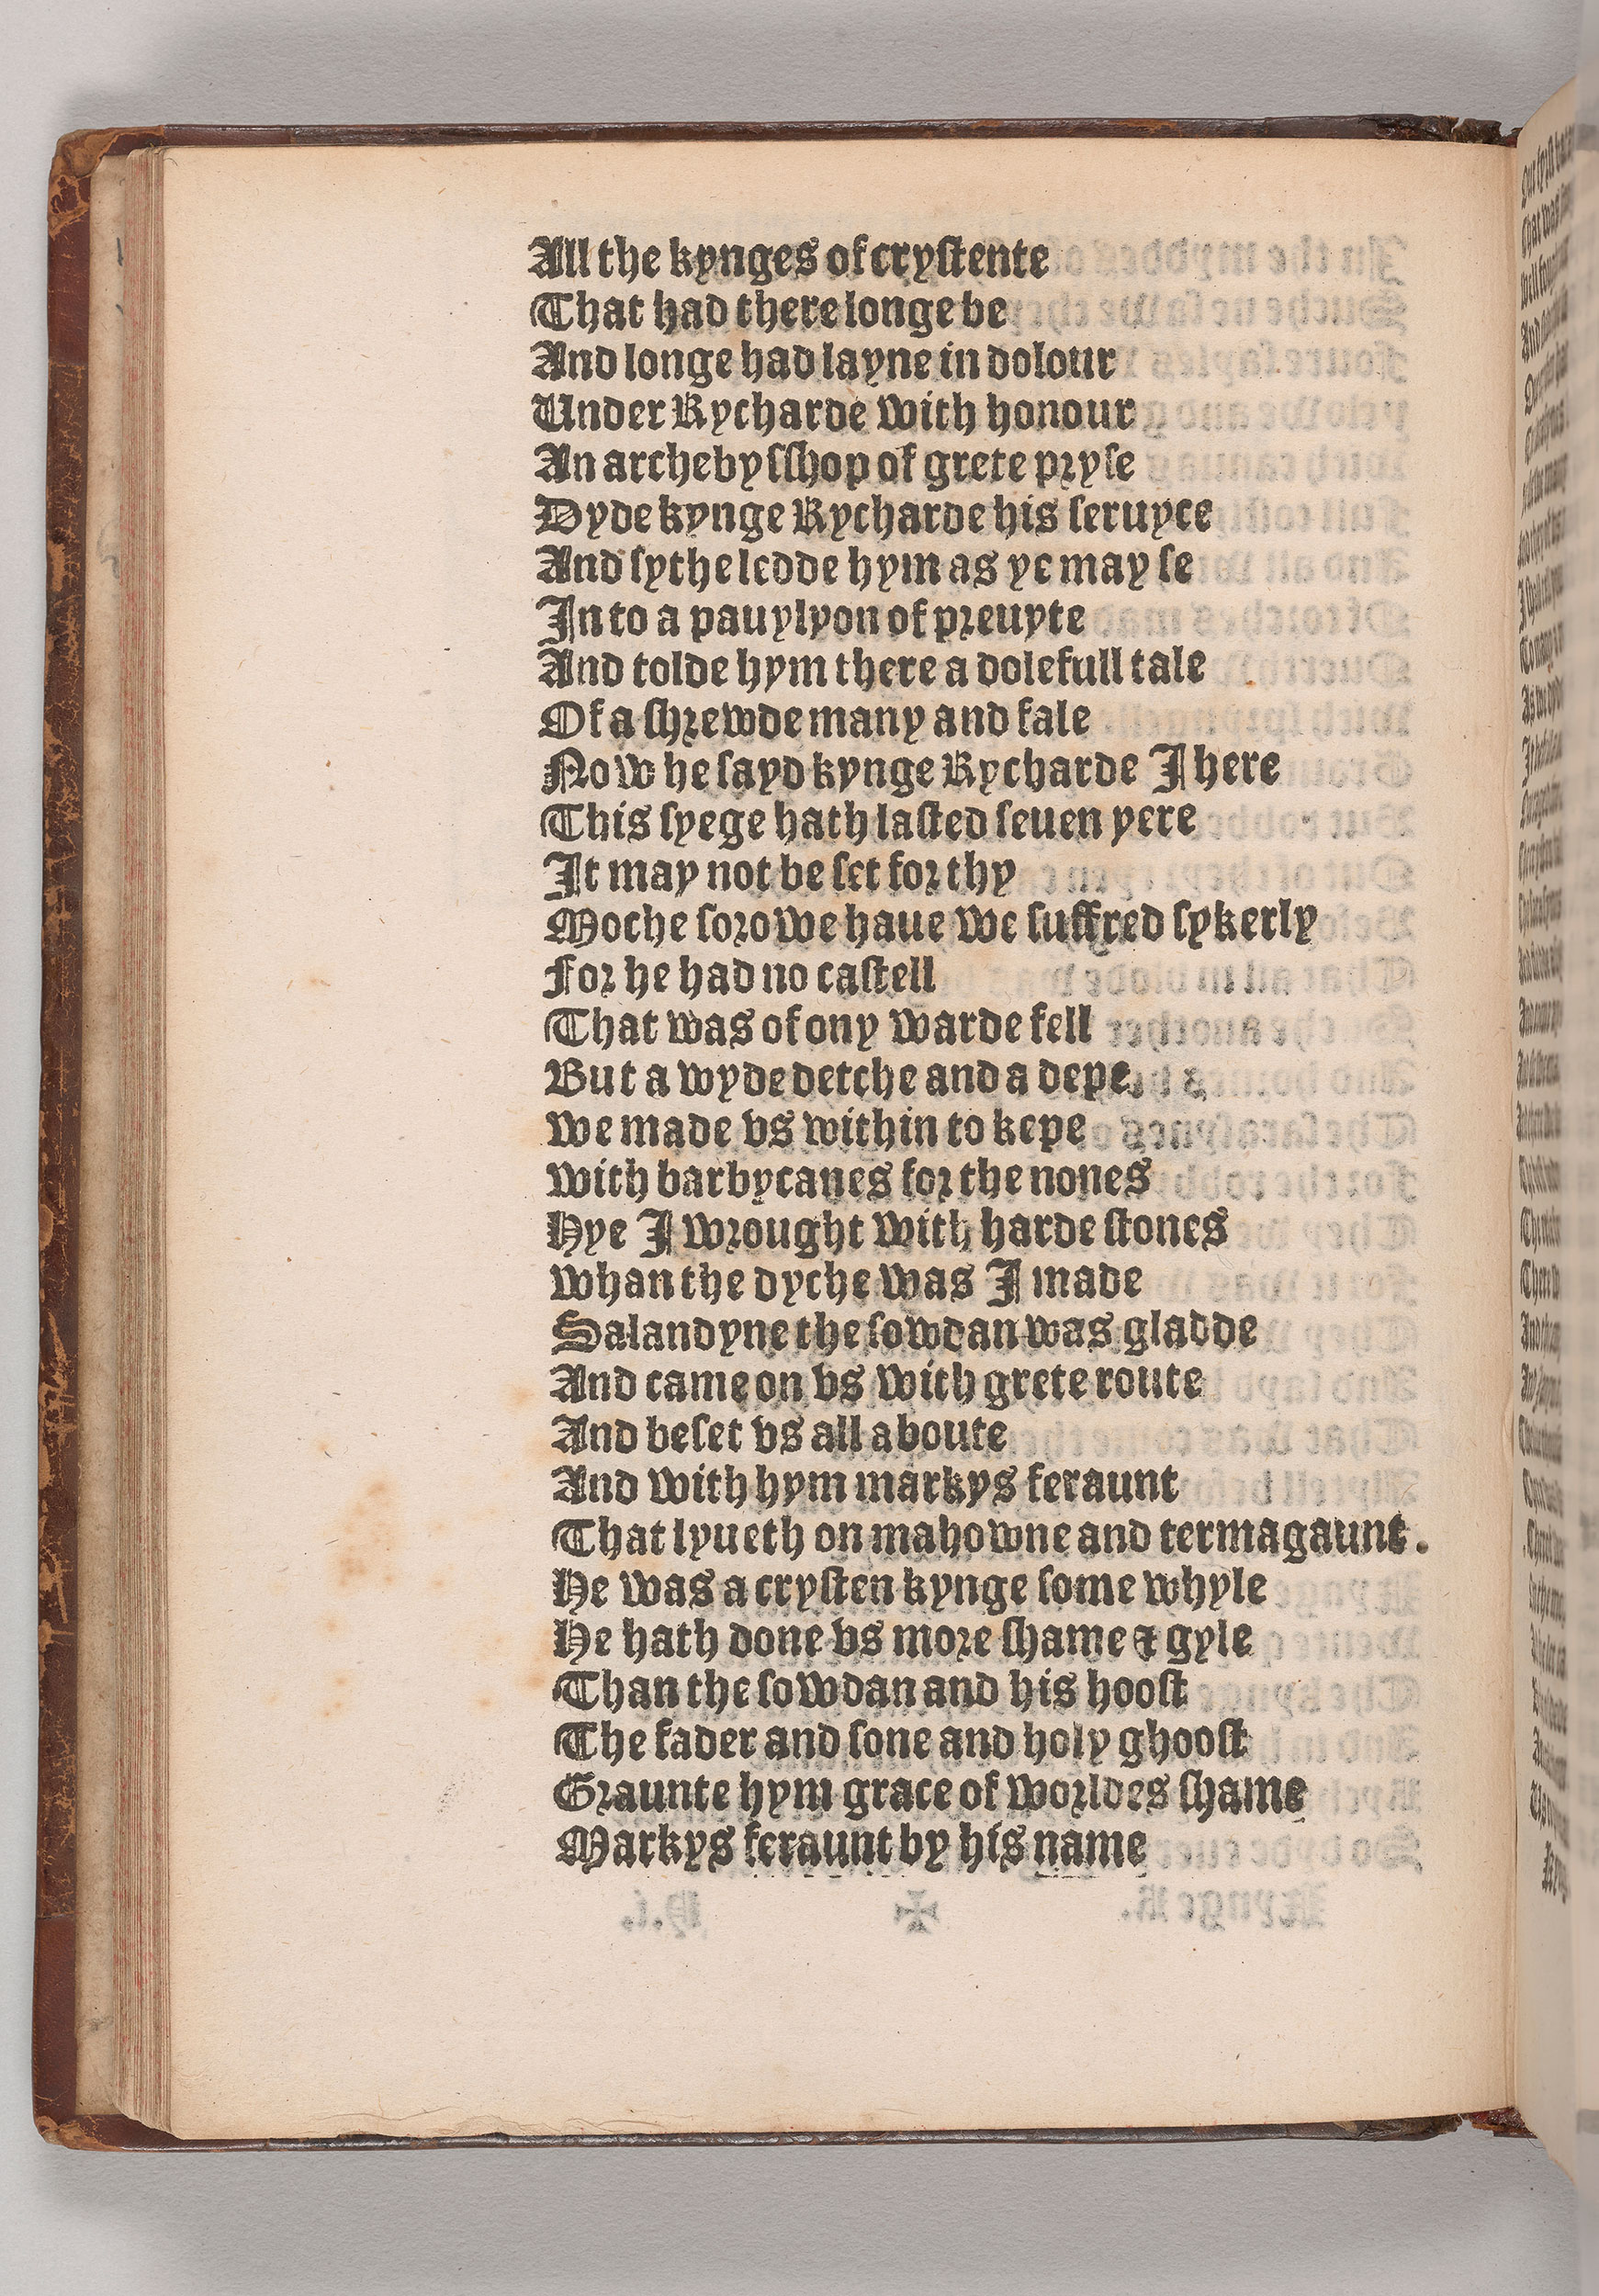 All the kynges of crystente
That had there longe be
And longe had layne in dolour
Under Rycharde with honour
An archebysshop of grete pryse
Dyde kynge Rycharde his seruyce
And sythe ledde hym as ye may se
In to a pauylyon of preuyte
And tolde hym there a dolefull tale
Of a shrewde many and fale
Now he sayd kynge Rycharde I here
This syege hath lasted seuen yere
It may not be set for thy
Moche sorowe haue we suffred sykerly
For he had no castell
That was of ony warde fell
But a wyde detche and a depe
we made vs within to kepe
with barbycanes for the nones
Hye I wrought with harde stones
whan the dyche was I made
Salandyne the sowdan was gladde
And came on vs with grete route
And beset vs all aboute
And with hym markys feraunt
That lyueth on mahowne and termagaunt.
He was a crysten kynge some whyle
He hath done vs more shame & gyle
Than the sowdan and his hoost
The fader and sone and holy ghoost
Graunte hym grace of worldes shame
Markys feraunt by his name